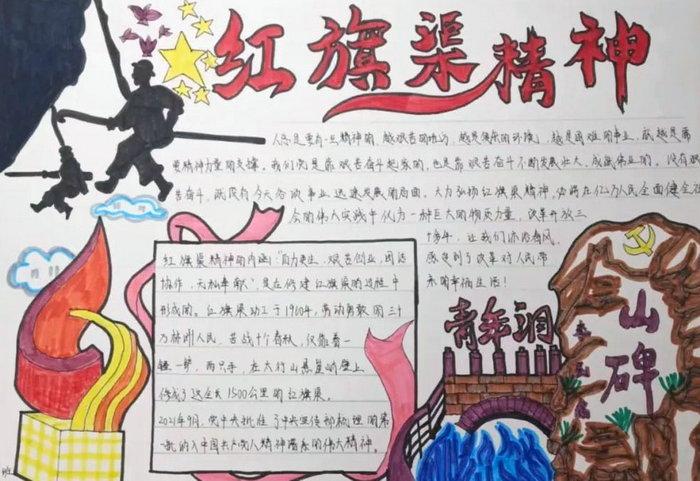 红旗渠精神
人总是要有一点精神的，越艰苦的地方，越是复杂的环境，越是困难的事业，就越是需
要精神力量的支撑。我们党是靠艰苦奋斗起家的，也是靠艰苦奋斗不断发展壮大、成就伟业的，没有艰
苦奋斗，就没有今天各项事业迅速发展的局面。大力弘扬红旗渠精神，必将在亿万人民全面建
的伟大实践中化为一种巨大的物质力量，改革开放三
十多年，让我们
感受到了改革对人民带
来的幸福生活！
红旗渠精神的内涵："自力更生，艰苦创业，团结
协作，无私奉献"，是在修建红旗渠的过程中
形成的。红旗渠动工于1960年，勤劳勇敢的三十
万林州人民，苦战十个春秋，仅靠着一
锤一铲，两只手，在太行山悬崖峭壁上
修成了这全长1500公里的红旗渠。
2021年9月，党中央批准了中央宣传部梳理的第
一批纳入中国共产党人精神谱系的伟大精神。
青年洞
山碑
班